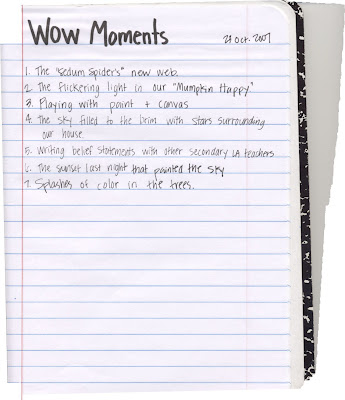 Wow Moments
29 Oct. 2007
1. The "Sedum Spider's" new web.
2. The flickering light in our "Mumpkin Happy"
3. Playing with paint + canvas
4. The sky filled to the brim with stars surrounding
our house.
5. Writing belief statements with other secondary LA teachers
6. The sunset last night that painted the sky
7. Splashes of color in the trees.